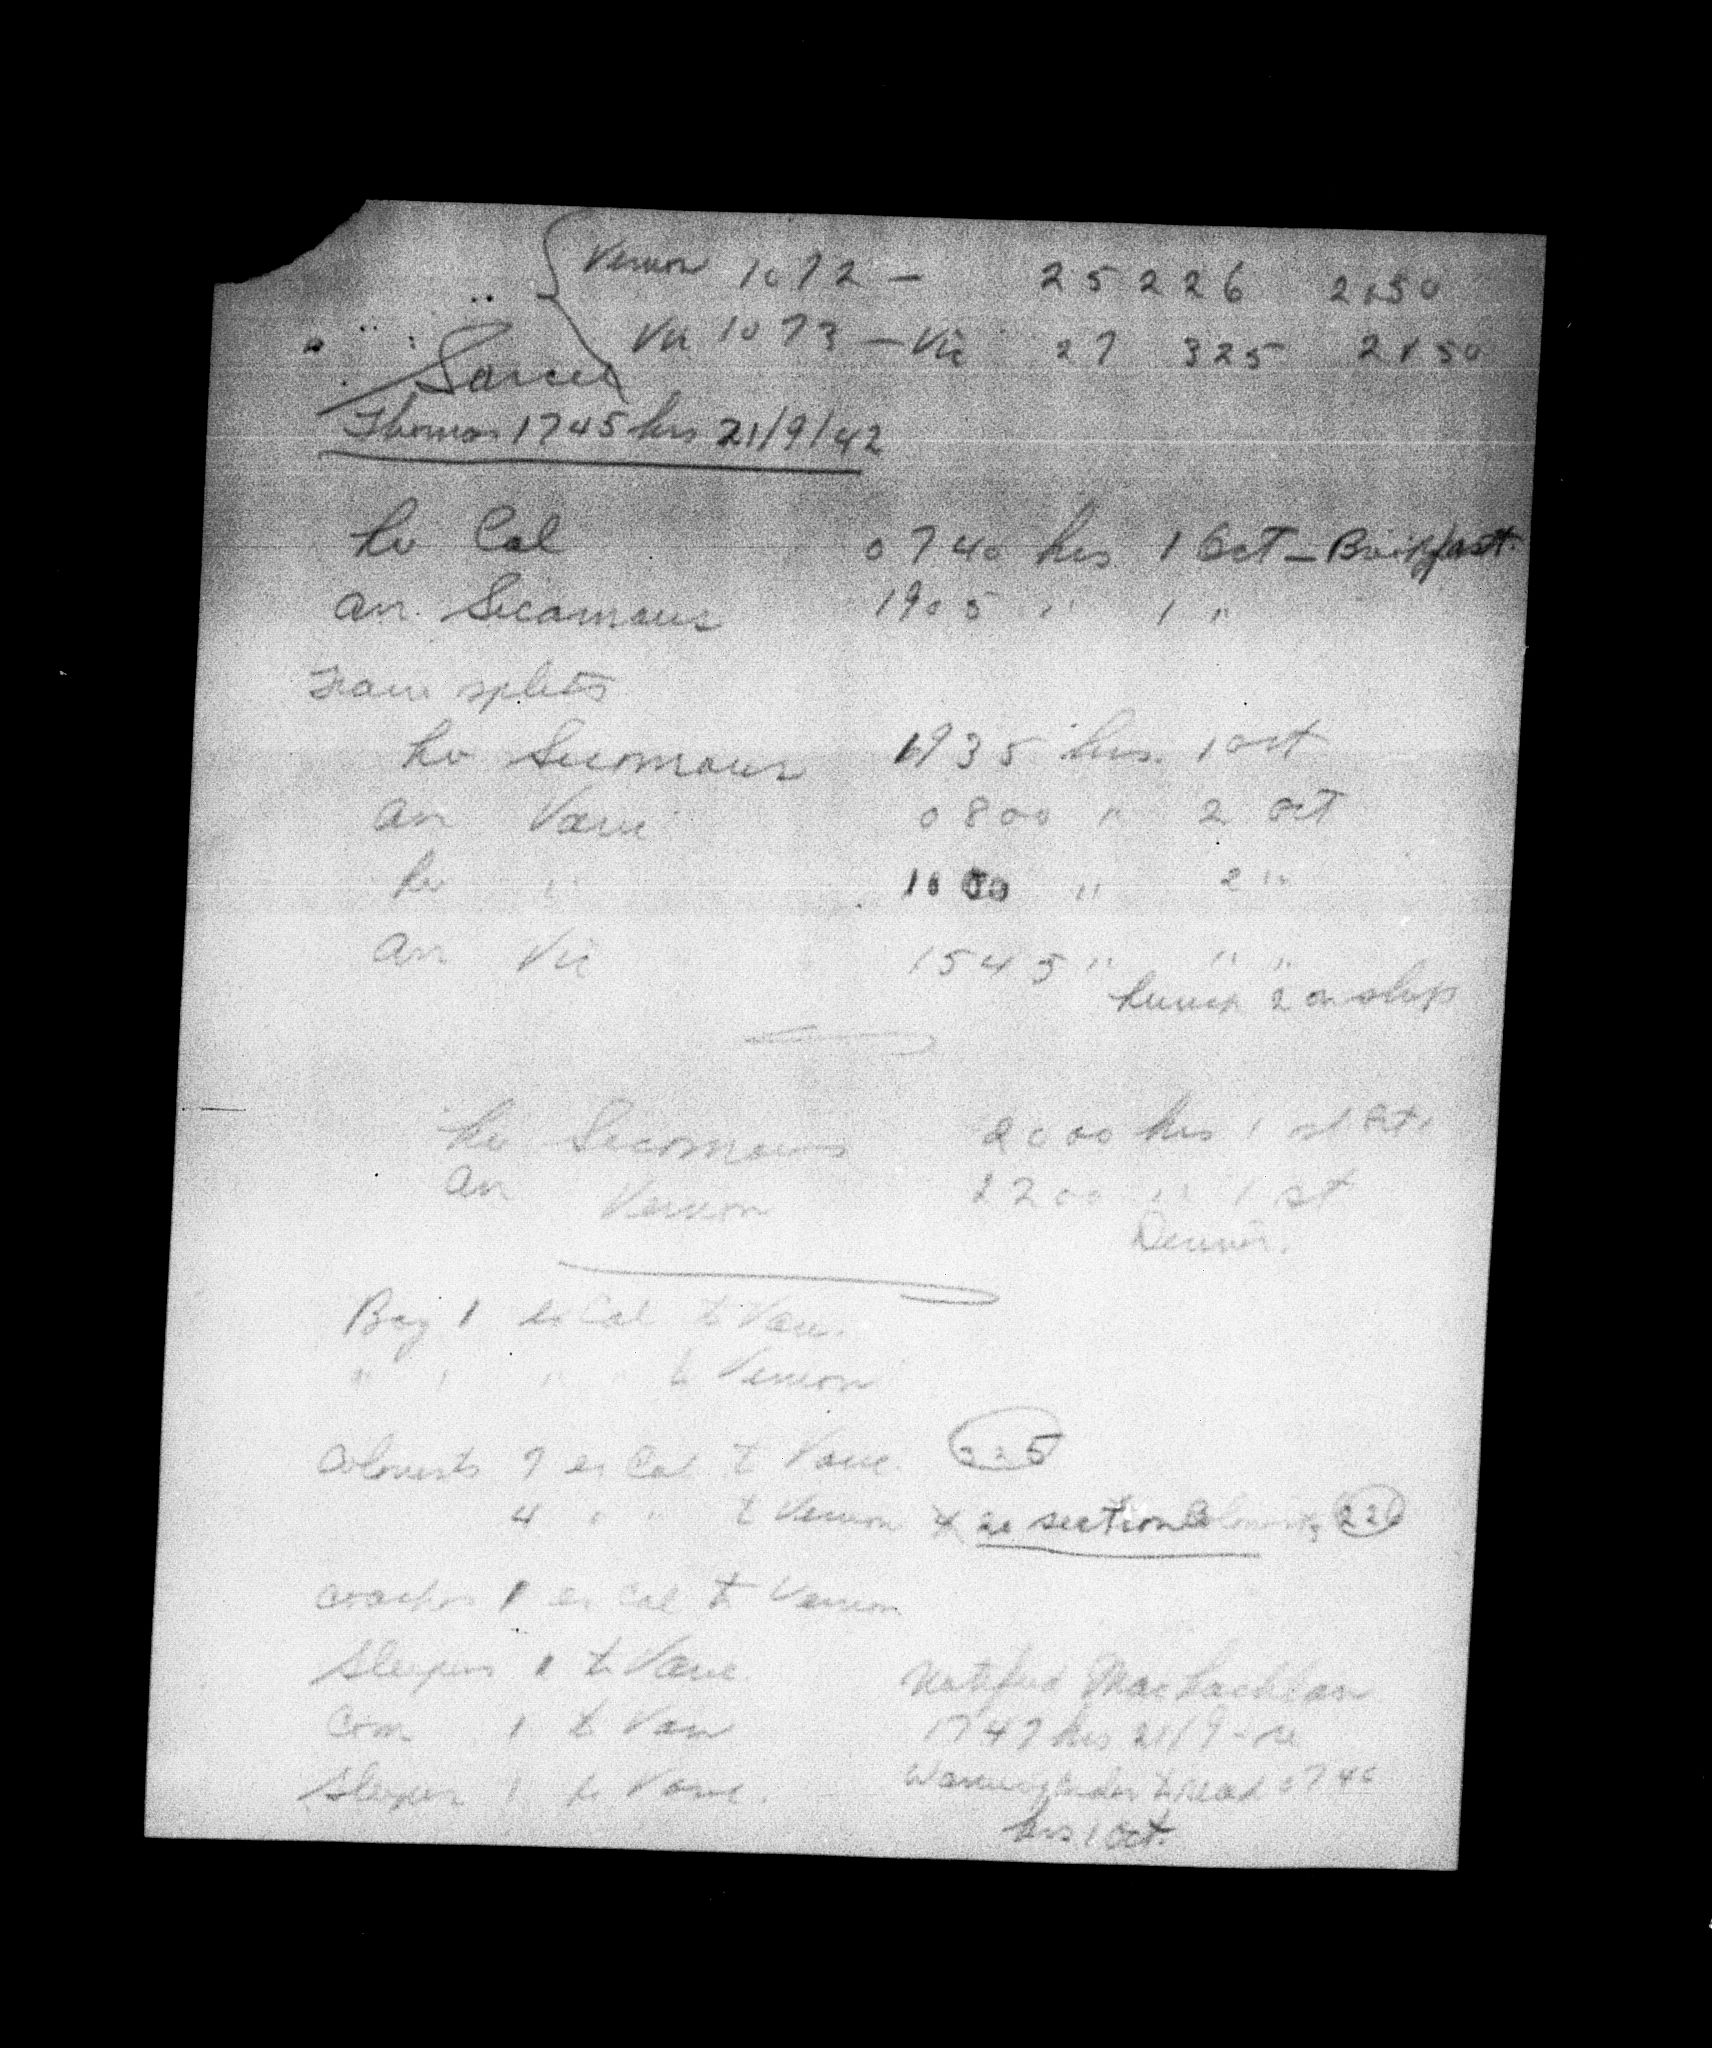 Vernon 1072 - 25 226 2150
Vic 1073 - Vic 27 325 2150
Sarcee
Thomas 1745 hrs 21/9/42
Lv Cal 0740 hrs 1 Oct - Breakfast
Arr. Sicamous 1905 " 1 "
Train splits
Lv Sicamous 1935 hrs. 1 Oct
Arr Vanc 0800 " 2 Oct
Lv " 1000 " 2 "
Arr Vic 1545 " " "
Lunch 2 on ship
Lv Sicamous 2000 hrs 1 st Oct.
Arr Vernon 2200 " 1 st
Dinner.
Bag 1 ex Cal to Vanc.
" " " " to Vernon
Colonists 7 ex Cal to Vanc. 325
4 " " to Vernon 20 section 226
Coaches 1 ex Cal to Vernon
Sleepers 1 to Vanc.
Com 1 to Van
Sleeper 1 to Vanc.
Notified MacLachlan
1747 hrs 21/9 - re
Warning order to read 0740
hrs 1 Oct.